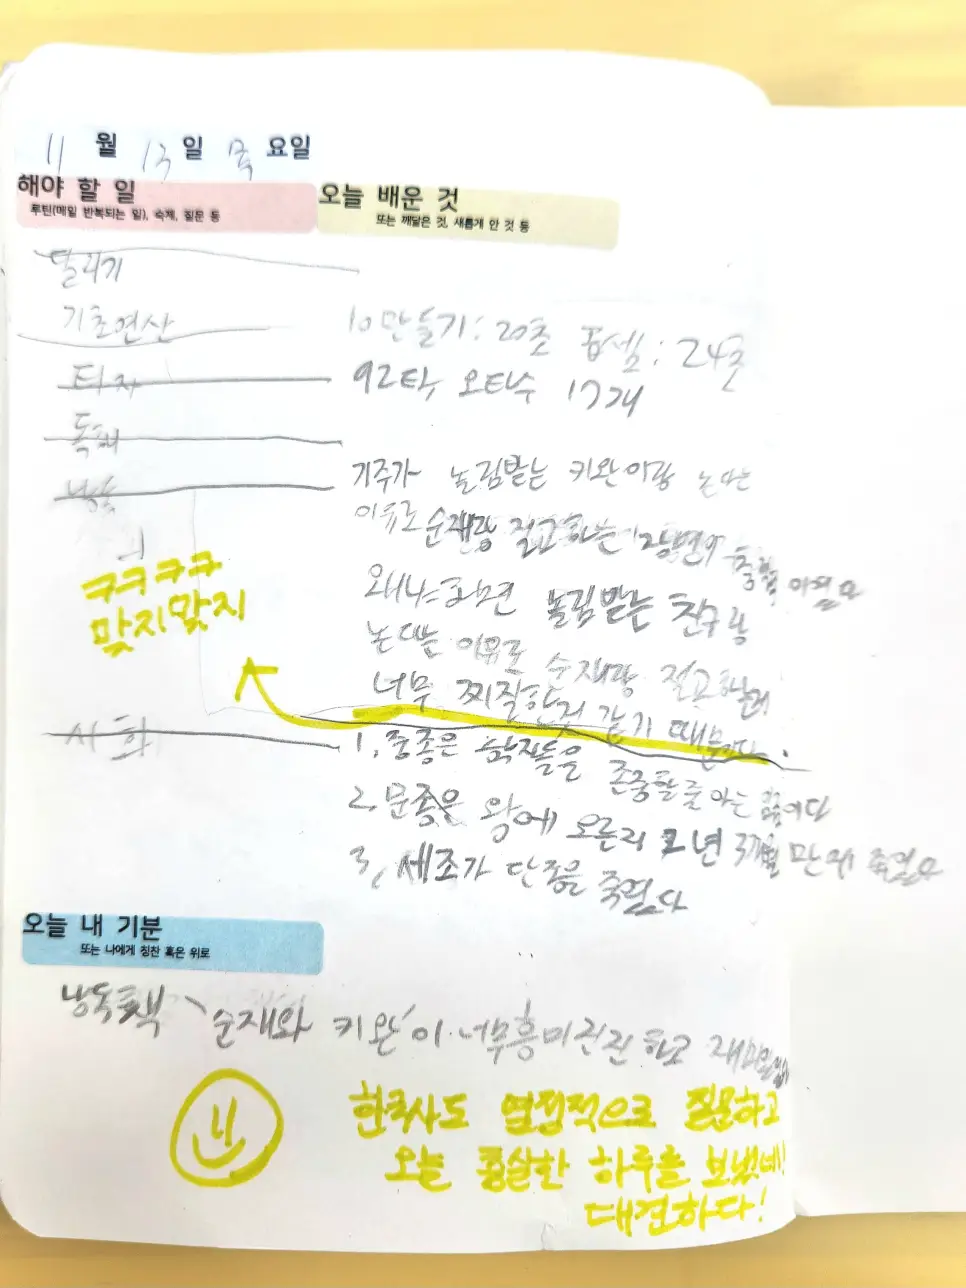 11 월 13 일 목 요일
해야 할 일
루틴(매일 반복되는 일), 숙제, 질문 등
오늘 배운 것
또는 깨달은 것, 새롭게 안 것 등
달리기
기초연산
10만들기: 20초 곱셈: 24초
타자
92타 오타수 17개
독해
낭독
기주가 놀림받는 키완이랑 논다는
이유로 순재랑 절교하는 장면이
왜냐하면 놀림받는 친구랑
논다는 이유로 순재랑 절교
너무 찌질한것 같기 때문이다.
ㅋㅋㅋㅋ
맞지맞지
사회
1. 중종은 학자들은 존중할 줄 아는
2. 문종은 왕에 오른지 2년 3개월 만에
3. 세조가 단종을 죽였다
오늘 내 기분
또는 나에게 칭찬 혹은 위로
낭독책 순재와 키완이 너무 흥미진진 하고
한국사도 열정적으로 질문하고
오늘 충실한 하루를 보냈네!!
대견하다!